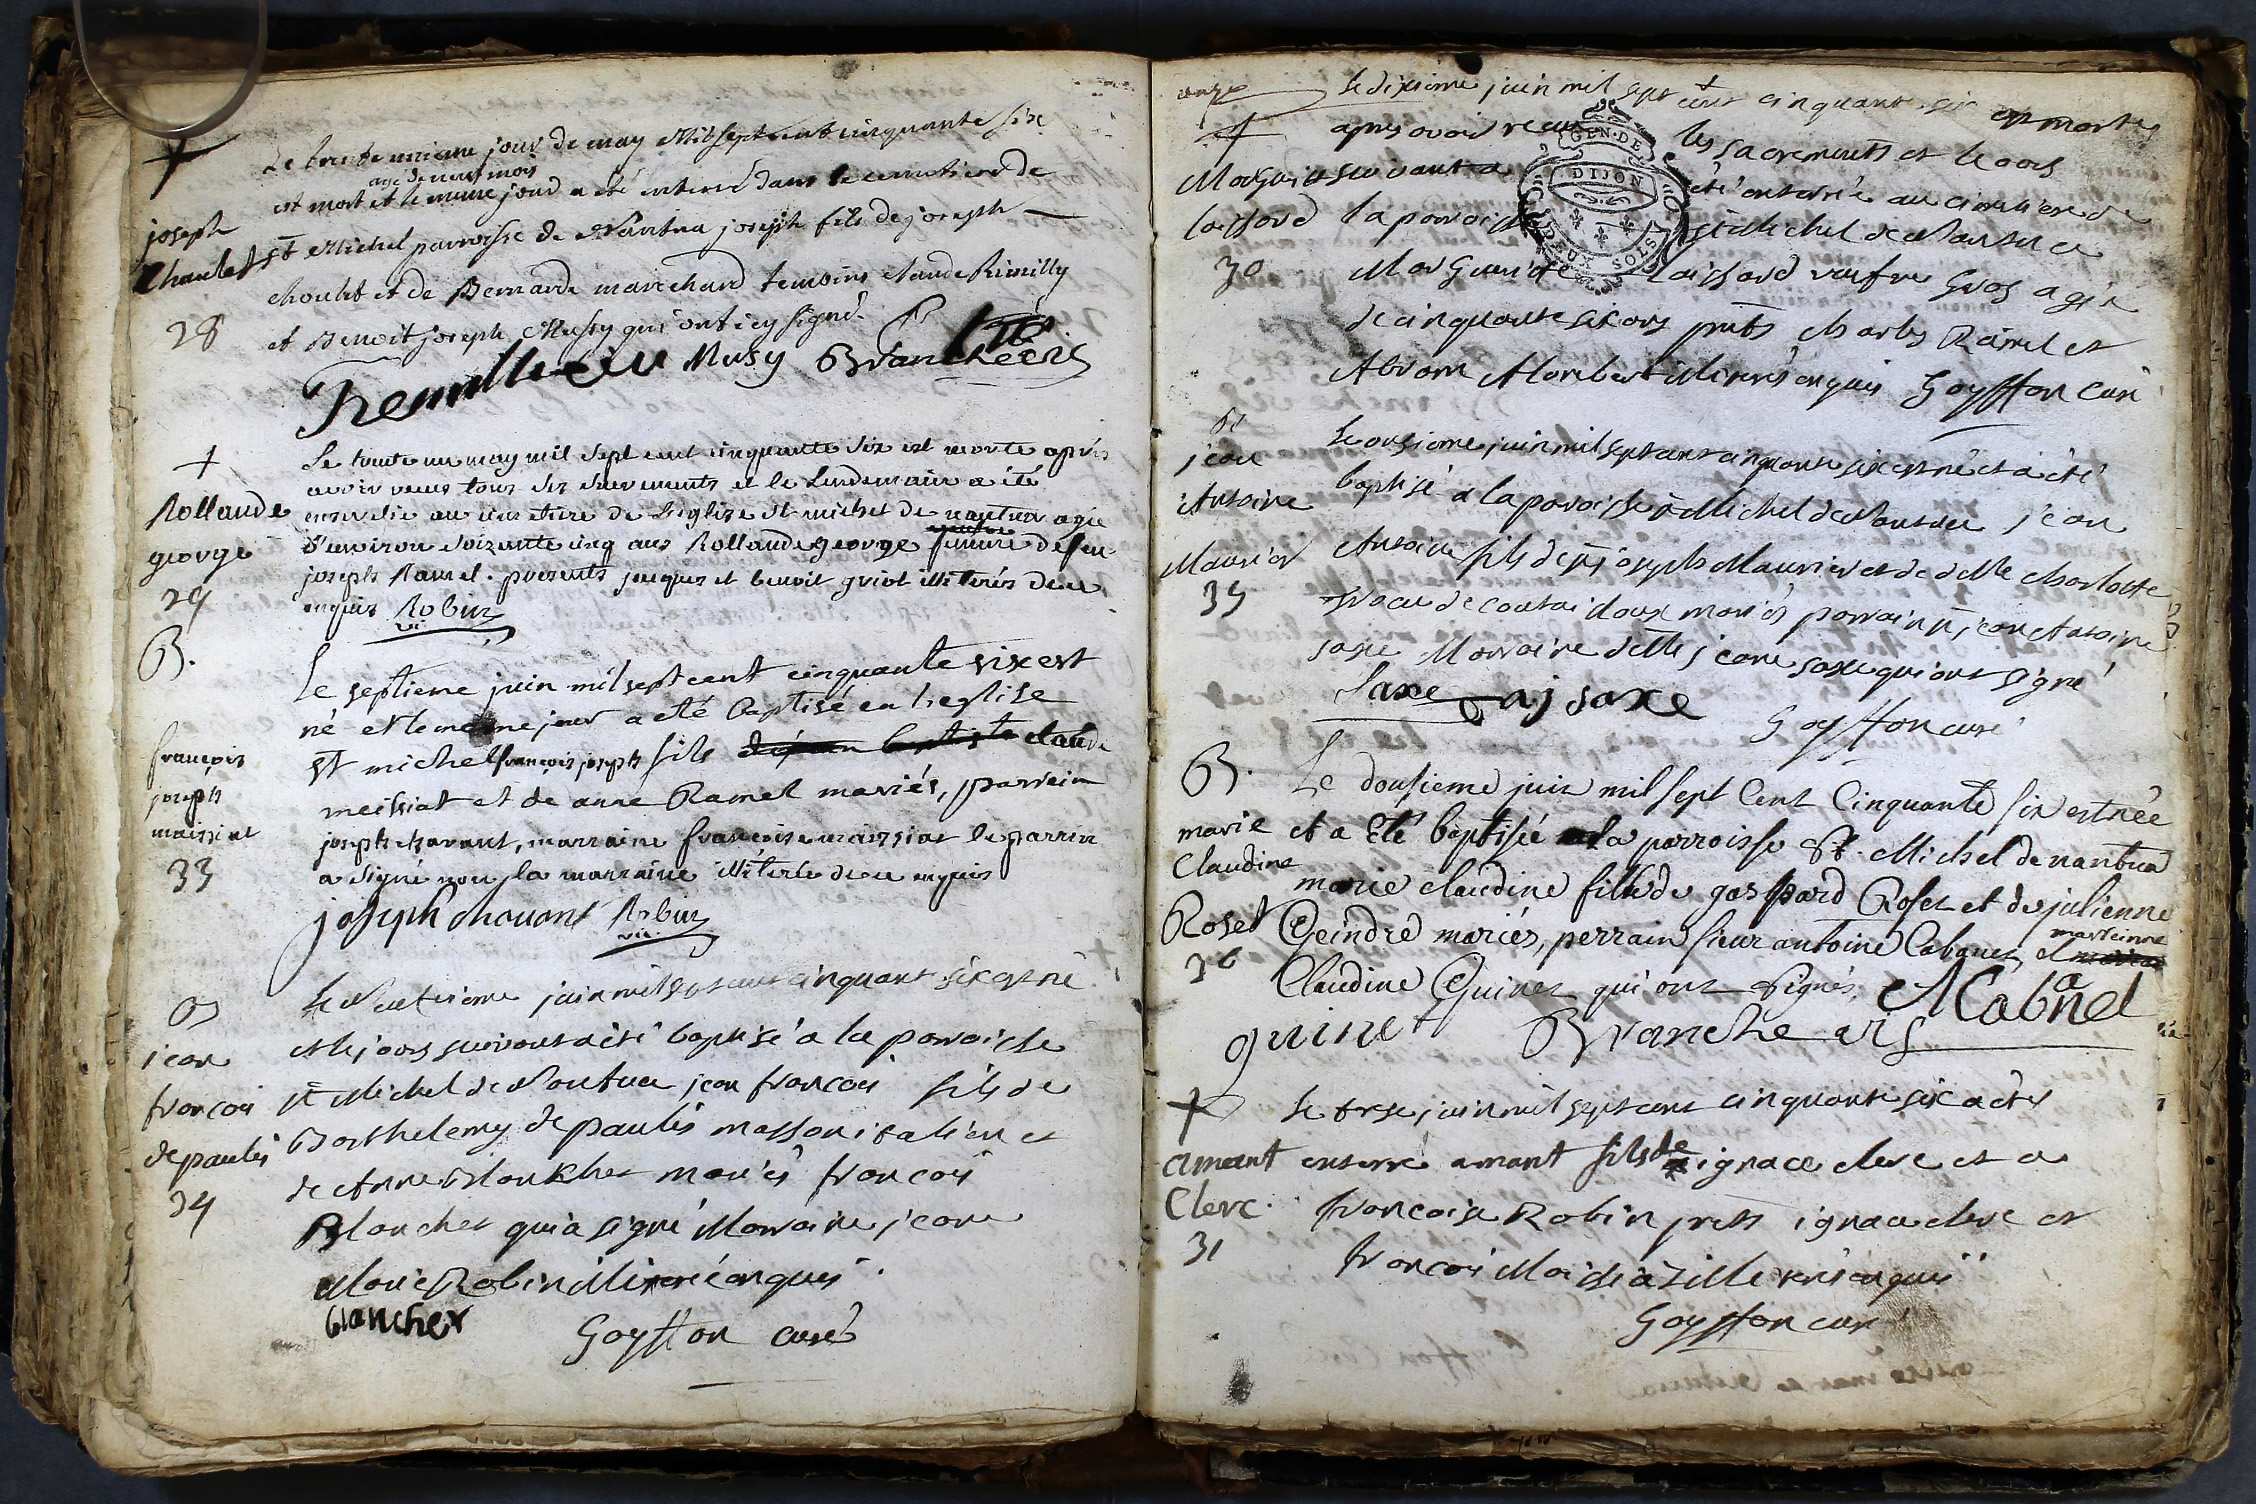 +
Le trente unieme jour de may Mil sept cent cinquante six
agé de neuf mois
est mort et le meme jour a été enterré dans le cemetiere de
joseph
Chaulet
28
St Michel parroisse de Nantua joseph fils de joseph
choulet et de Bernarde marechand temoins claude Rimilly
et Benoit joseph Musy qui ont icy signé.
Musy Branche
+
Rollande
george
29
Le trente un may mil sept cent cinquante six est morte après
avoir reçus tous ses sacrements et le lendemain a été
ensevelie au cimetiere de l'eglise st michel de nantua agée
d'environ soixante cinq ans Rollande george femme de feu
joseph Ramel. presents jacques et benoit griot illiterés de ce
enquis Robin
vic.
B.
françois
joseph
maissiat
33
Le septieme juin mil sept cent cinquante six est
né et le meme jour a eté baptisé en l'eglise
st michel françois joseph fils claude
meissiat et de anne Ramel mariés, parrein
joseph chavant, marraine francoise maissiat le parrin
a signé non la marraine illiterée de ce enquis
joseph chauant Robin
vic.
B
jean
francois
de paulis
34
Le Neufvieme juin mil sept cent cinquante six est né
et le jours suivant a été baptisé a la parroisse
st Michel de Nantua jean francois fils de
Barthelemy de paulis masson italien et
de Anne Blanchet mariés francois
Blanchet qui a signé Marraine jeane
Marie Robin illiteré enquis
blancher Goyffon curé
onze
+
Marguerite
Laissard
30
Le dixieme juin mil sept cent cinquante six est morte
apres avoir recu les sacrements et le jours
suivant a été enterrée au cimetiere de
la parroisse st Michel de Nantua
Marguerite Laissard veufve Gros agée
de cinquante six ans pnts charles Ramel et
Abram Alombert illiterés enquis Goyffon curé
B
jean
Antoine
Maurier
35
Le onzieme juin mil sept cent cinquante six est né et a été
baptisé a la parroisse st Michel de Nantua jean
Antoine fils de sr joseph Maurier et de delle charlotte
mariés parrain sr jean Antoine
saxe Marraine delle jeane saxe qui ont signé
Saxe aj saxe
Goyffon curé
B.
marie
Claudine
Roset
36
Le dousieme juin mil sept Cent Cinquante six est née
et a Eté baptisée a la parroisse St. Michel de nantua
marie claudine fille de gaspard Roset et de julienne
Geindre mariés, perrain sieur antoine Cabanet, et marreinne
Claudine Guinet qui ont signés, A Cabanet
guinet Branche vic
+
amant
Clerc.
31
Le trese juin mil sept cent cinquante six a été
enterré amant fils de ignace clerc et a
francoise Robin pnts ignace clerc et
francois Maissiat illiterés enquis
Goyffon curé
GEN. DE
DIJON